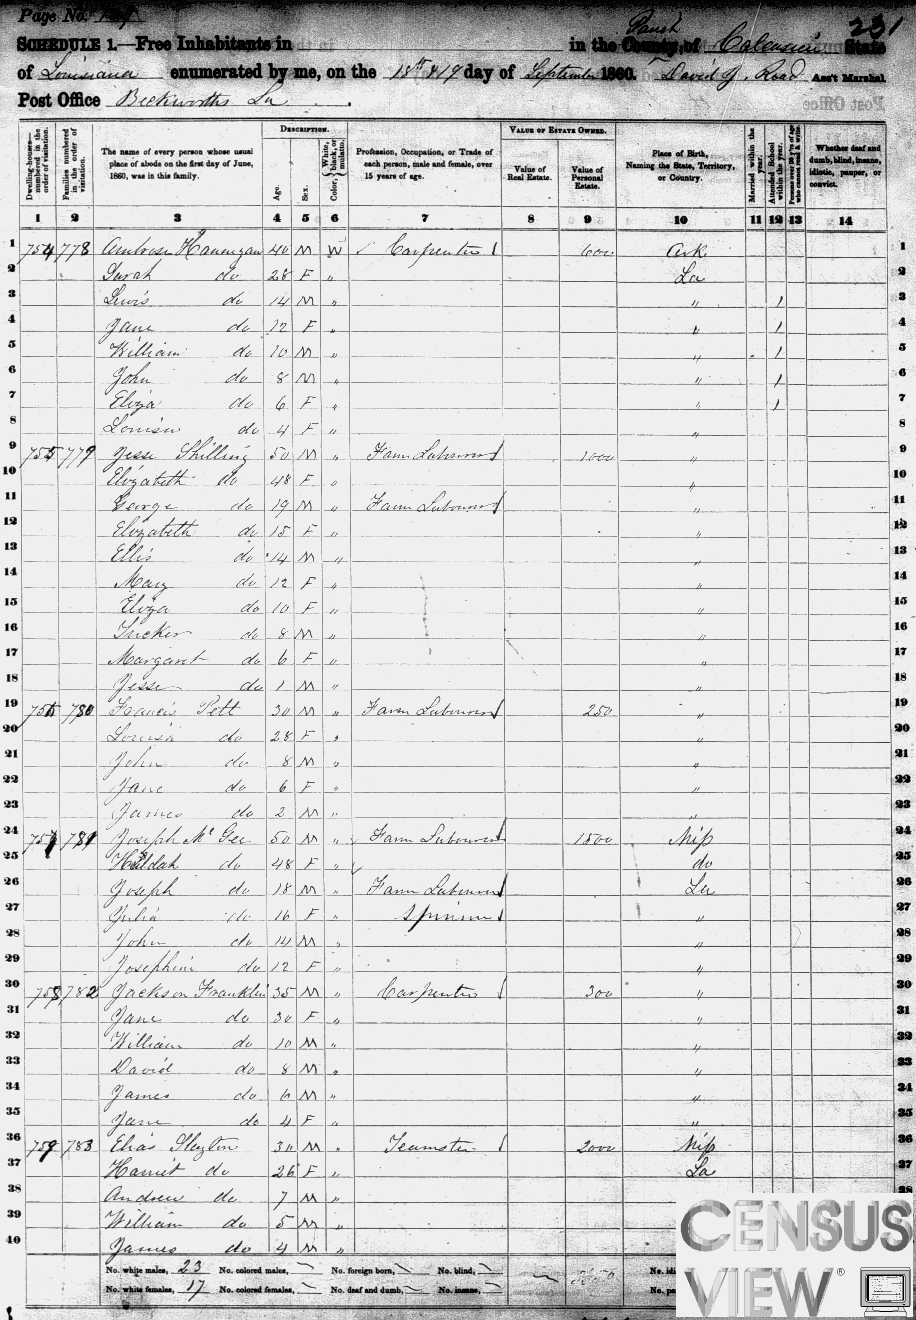 Page No.
231
SCHEDULE 1.—Free Inhabitants in in the County Parish of Calcasieu State
of Louisiana enumerated by me, on the 18th & 19 day of September 1860. David J. Road Ass't Marshal
Post Office Beckworths La.
Dwelling-houses—numbered in the order of visitation.
Families numbered in the order of visitation.
The name of every person whose usual place of abode on the first day of June, 1860, was in this family.
DESCRIPTION.
Age.
Sex.
Color, White, black, or mulatto.
Profession, Occupation, or Trade of each person, male and female, over 15 years of age.
VALUE OF ESTATE OWNED.
Value of Real Estate.
Value of Personal Estate.
Place of Birth, Naming the State, Territory, or Country.
Married within the year.
Attended School within the year.
Persons over 20 y'rs of age who cannot read & write.
Whether deaf and dumb, blind, insane, idiotic, pauper, or convict.
1 2 3 4 5 6 7 8 9 10 11 12 13 14
1 754 778 Ambrose Hannigan 40 M W Carpenter 600 Ark 1
2 Sarah do 28 F " La 2
3 Lewis do 14 M " " / 3
4 Jane do 12 F " " / 4
5 William do 10 M " " / 5
6 John do 8 M " " / 6
7 Eliza do 6 F " " / 7
8 Louisa do 4 F " " 8
9 755 779 Jesse Shilling 50 M " Farm Labourer 1000 " 9
10 Elizabeth do 48 F " " 10
11 George do 19 M " Farm Labourer " 11
12 Elizabeth do 15 F " " 12
13 Ellis do 14 M " " 13
14 Mary do 12 F " " 14
15 Eliza do 10 F " " 15
16 Tucker do 8 M " " 16
17 Margaret do 6 F " " 17
18 Jesse do 1 M " " 18
19 756 780 Francis Pett 30 M " Farm Labourer 250 " 19
20 Louisa do 28 F " " 20
21 John do 8 M " " 21
22 Jane do 6 F " " 22
23 James do 2 M " " 23
24 757 781 Joseph McGee 50 M " Farm Labourer 1500 Mip 24
25 Huldah do 48 F " do 25
26 Joseph do 18 M " Farm Labourer La 26
27 Julia do 16 F " Spinner " 27
28 John do 14 M " " 28
29 Josephine do 12 F " " 29
30 758 782 Jackson Franklin 35 M " Carpenter 300 " 30
31 Jane do 30 F " " 31
32 William do 10 M " " 32
33 David do 8 M " " 33
34 James do 6 M " " 34
35 Jane do 4 F " " 35
36 759 783 Elias Slayton 30 M " Teamster 2000 Mip 36
37 Harriet do 26 F " La 37
38 Andrew do 7 M " 38
39 William do 5 M "
40 James do 4 M "
No. white males, 23 No. colored males, No. foreign born, No. blind,
No. white females, 17 No. colored females, No. deaf and dumb, No. insane,
CENSUS
VIEW®